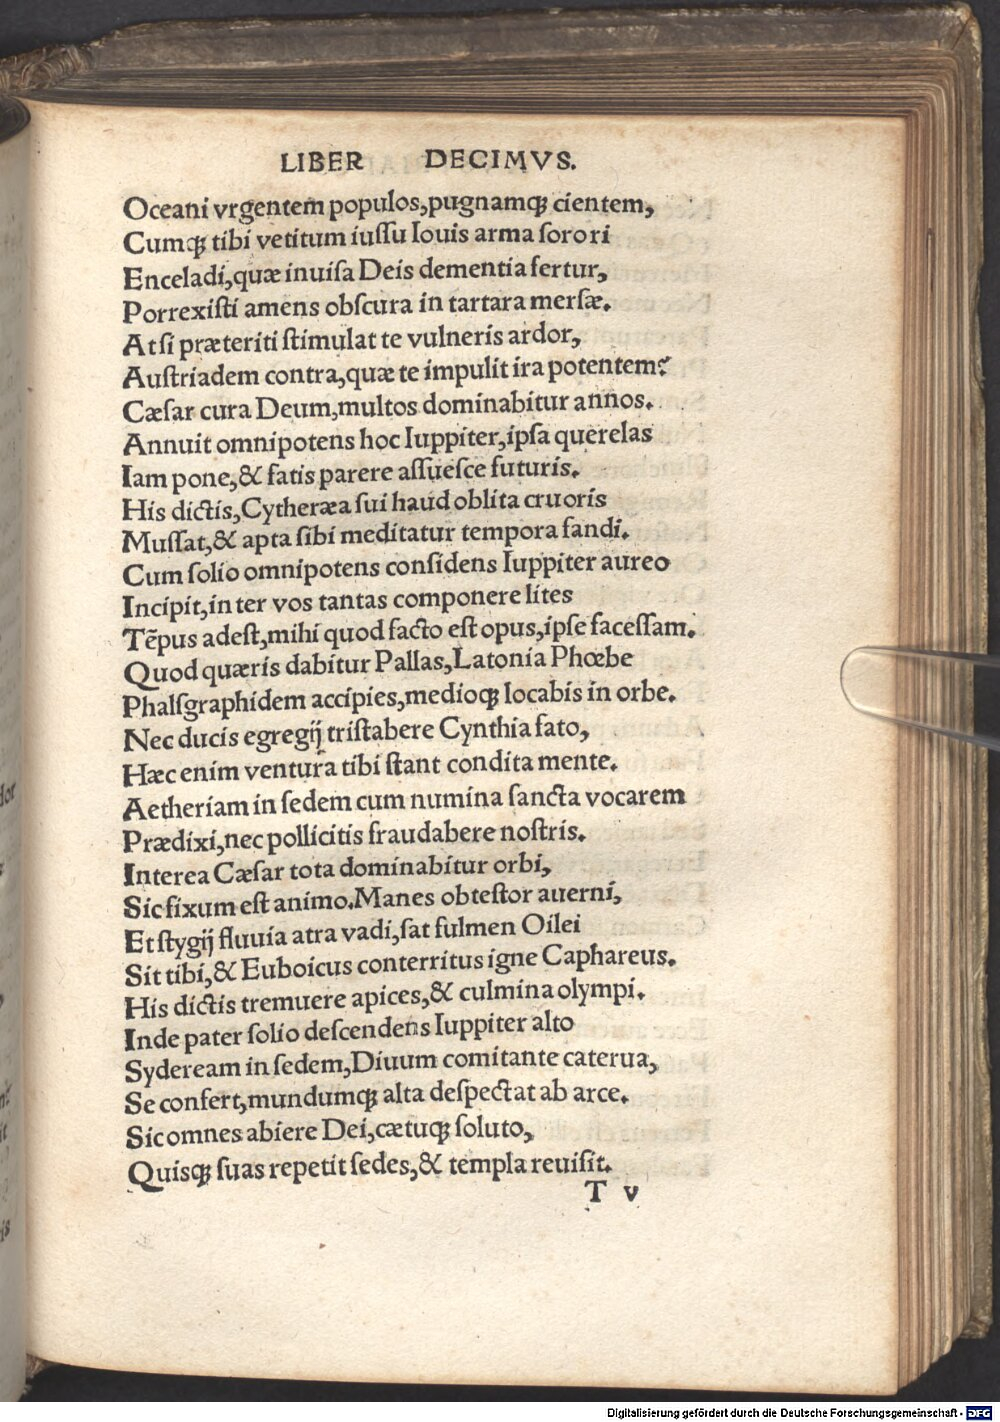 LIBER DECIMVS.
Oceani vrgentem populos,pugnamqꝫ cientem,
Cumqꝫ tibi vetitum iuſſu Iouis arma ſorori
Enceladi,quæ inuiſa Deis dementia fertur,
Porrexiſti amens obſcura in tartara merſæ.
At ſi præteriti ſtimulat te vulneris ardor,
Auſtriadem contra,quæ te impulit ira potentem?
Cæſar cura Deum,multos dominabitur annos.
Annuit omnipotens hoc Iuppiter,ipſa querelas
Iam pone,& fatis parere aſſueſce futuris.
His dictis,Cytheræa ſui haud oblita cruoris
Muſſat,& apta ſibi meditatur tempora fandi.
Cum ſolio omnipotens conſidens Iuppiter aureo
Incipit,inter vos tantas componere lites
Tẽpus adeſt,mihi quod facto eſt opus,ipſe faceſſam.
Quod quæris dabitur Pallas,Latonia Phœbe
Phalſgraphidem accipies,medioqꝫ locabis in orbe.
Nec ducis egregij triſtabere Cynthia fato,
Hæc enim ventura tibi ſtant condita mente.
Aetheriam in ſedem cum numina ſancta vocarem
Prædixi,nec pollicitis fraudabere noſtris.
Interea Cæſar tota dominabitur orbi,
Sic fixum eſt animo.Manes obteſtor auerni,
Et ſtygij fluuia atra vadi,ſat fulmen Oilei
Sit tibi,& Euboicus conterritus igne Caphareus.
His dictis tremuere apices,& culmina olympi.
Inde pater ſolio deſcendens Iuppiter alto
Syderean in ſedem,Diuum comitante caterua,
Se confert,mundumqꝫ alta deſpectat ab arce.
Sic omnes abiere Dei,cætuqꝫ ſoluto,
Quisqꝫ ſuas repetit ſedes,& templa reuiſit.
T v
Digitalisierung gefördert durch die Deutsche Forschungsgemeinschaft - DFG